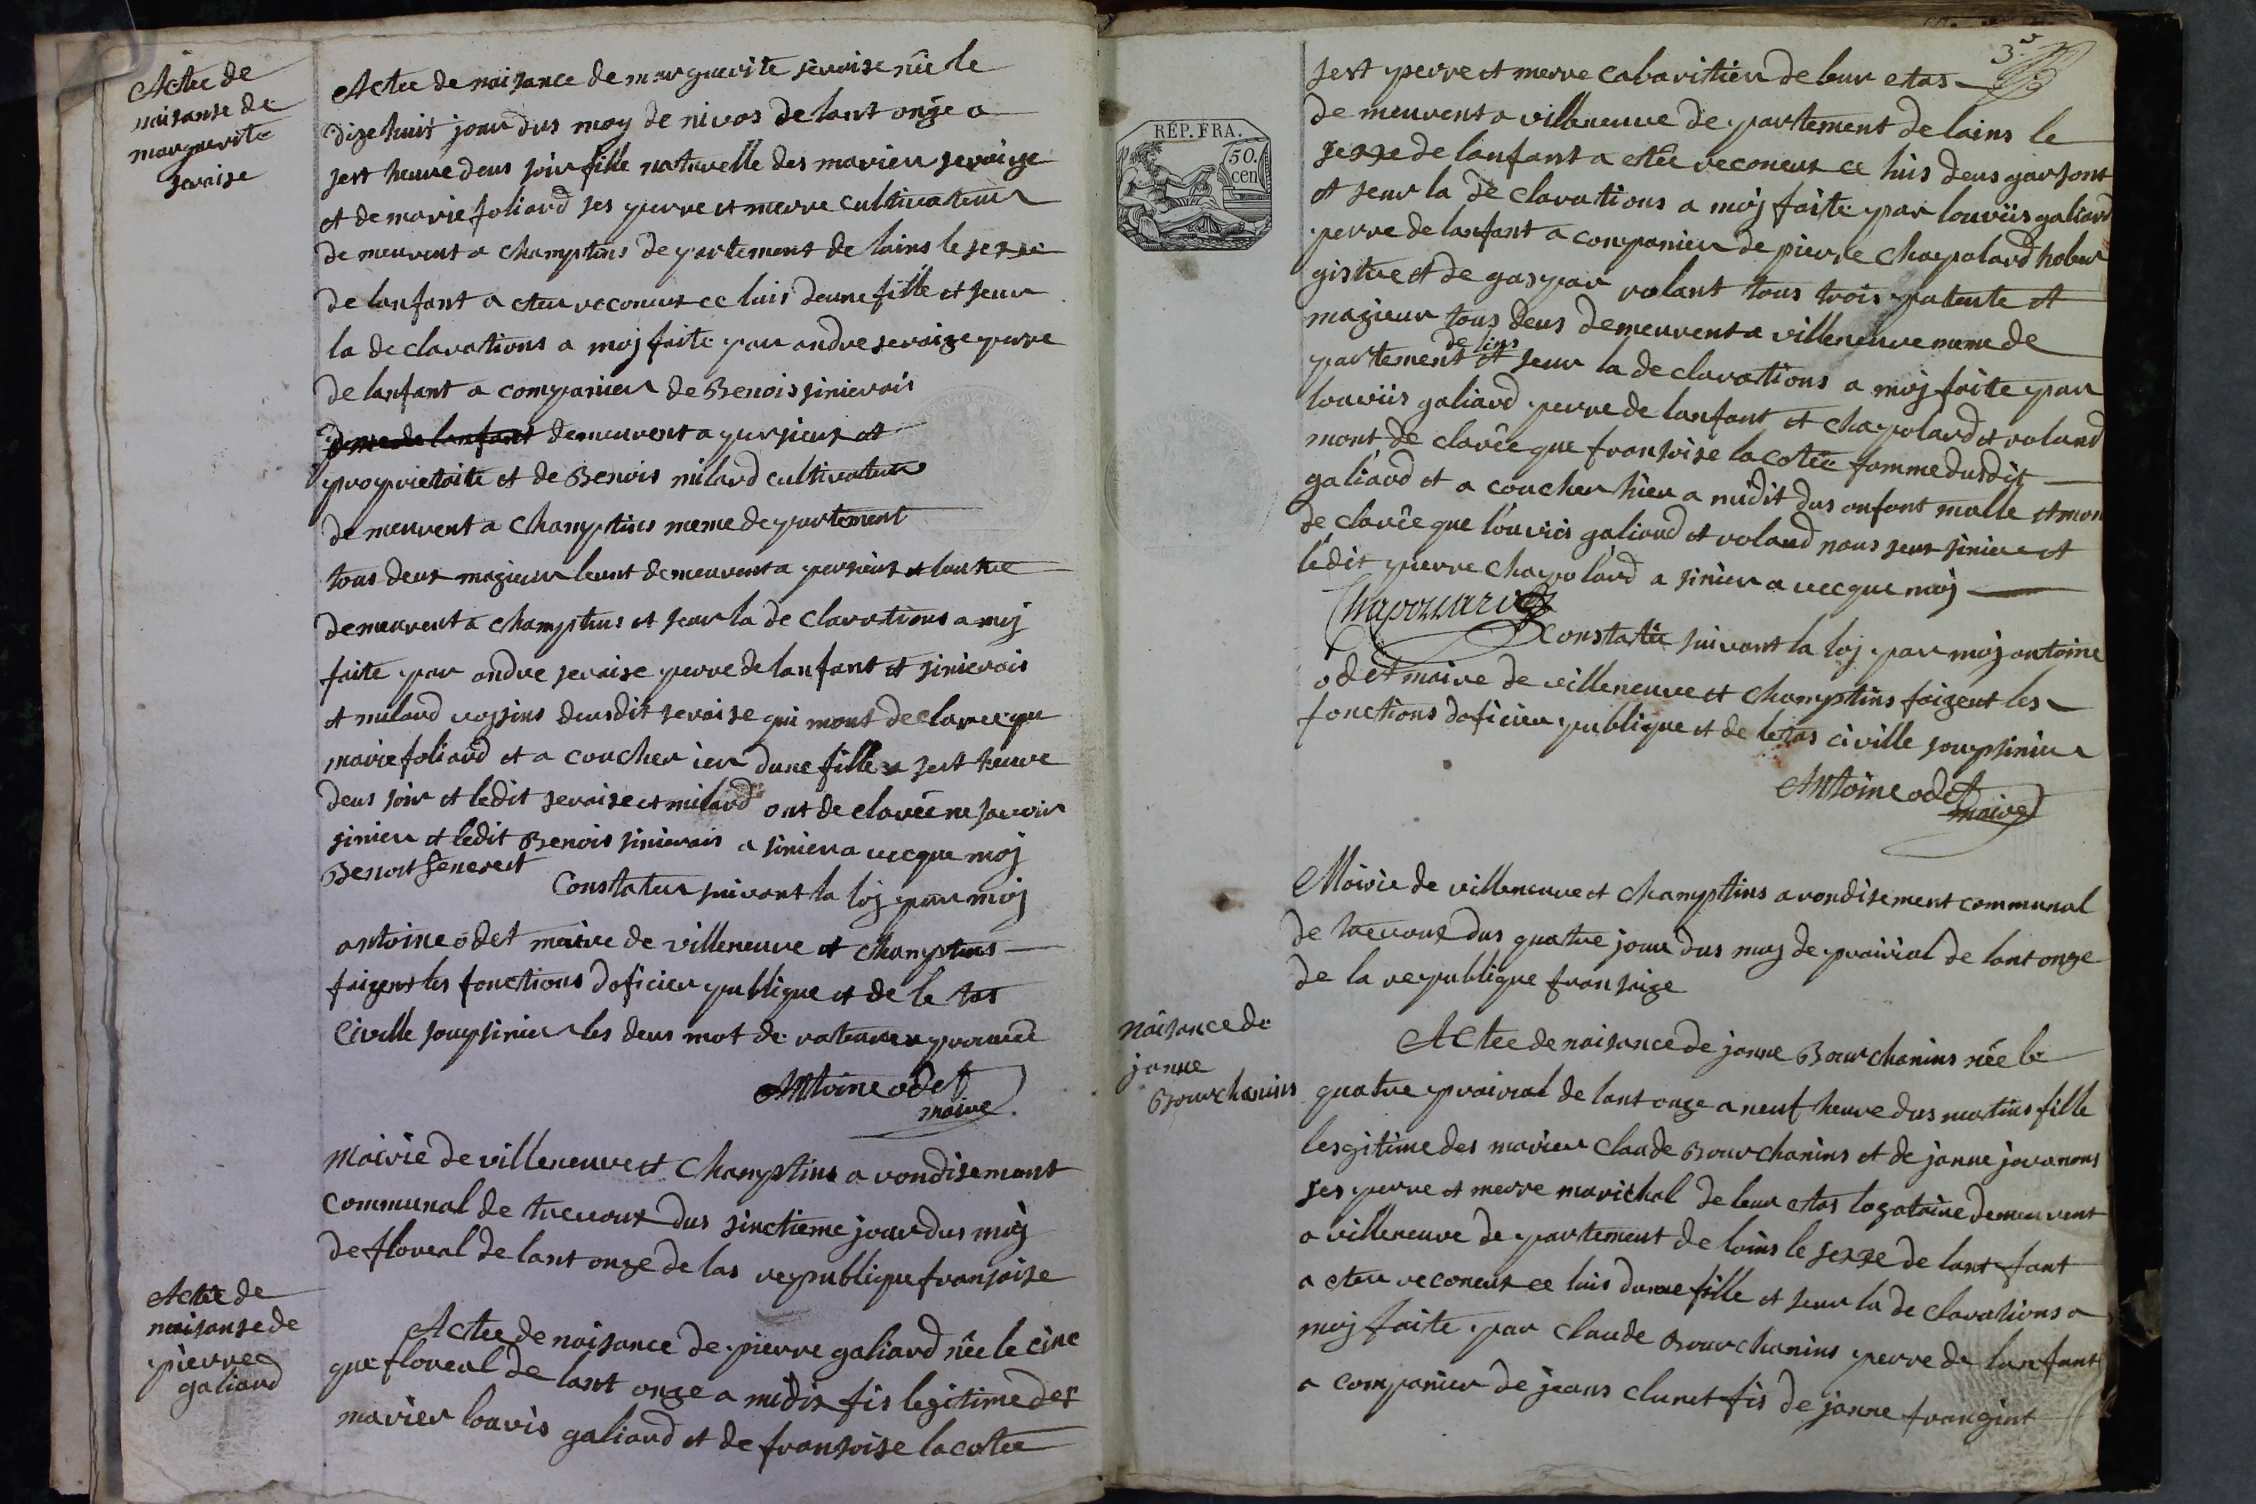 Actee de
naisanse de
marguerite
seraise
Actee de naisance de marguerite seraise née le
dize huit jour dus moy de nivos de lant onze a
sest heure deus soir fille naturelle des marier seraize
et de marie foliard ses perre et merre cultivateur
de meurent a Champtins de partement de lains le sexse
de lanfant a eteu reconeus ce luis deune fille et seur
la de clarations a moj faite par andre seraize perre
de lanfant a companier de Benois sinierais
perre de lanfant demeurent a persieux et
proprietaite et de Benois milard cultivateur
de meurent a Champtins meme de partement
tous deus magieur leunt demeurent a persieux et lautre
demeurent a Champtins et seur la de clarations a moj
faite par andre seraise perre de lanfant et sinierais
et milard vossins deusdit seraise qui mont de claree que
marie foliard et a coucher ier dune fille a sest heure
deus soir et ledit seraise et milard ont de claree ne savoir
sinier et ledit Benois sinierais a sinier a vecque moj
Benoit Senerest
Constater suivant la loj par moj
antoine odet maire de villeneuve et Champtins
faizent les fonctions doficier publique et de le tas
Civille soupsinier les deus mot de rateurer prouvée
Antoine odet
maire
Mairie de villeneuve et Champtins a rondisemant
communal de trevoux dus sinctieme jour dus moj
de floreal de lant onze de las republique fransaise
Actee de
naisanse de
pierre
galiard
Actee de naisance de pierre galiard née le cinc
que floreal de lant onze a midis fis legitime des
marier louvis galiard et de fransoise la cotee
3
sest perre et merre cabaritier de leur etas
de meurent a villeneuve de partement de lains le
sexse de lanfant a etée reconeus ce luis deus garsont
et seur la de clarations a moj faite par louviis galiard
perre de lanfant a companier de pierre Chapolard hober
gistre et de gaspar rolant tous trois patente et
magieur tous deus demeurent a villeneuve meme de
de lins
partement et seur la de clarations a moj faite par
louviis galiard perre de lanfant et chapolard et roland
mont de clarée que fransoise la cotée famme dusdit
galiard et a coucher hier a midit dus anfant malle et mon
de clarée que louviis galiard et roland nous seus sinier et
lédit pierre chapolard a sinier a vecque moj
Chapollard
Constatée suivant la loj par moj antoine
odet maire de villeneuve et Champtins faizent les
fonctions doficier publique et de letas civille soupsinier
Antoine odet
maire
Mairie de villeneuve et Champtins a rondisement communal
de trevoux dus quatre jour dus moj de prairial de lant onze
de la republique fransaize
Naisance de
janne
Bourchanins
Actee de naisance de janne Bourchanins née le
quatre prairial de lant onze a neuf heure dus matins fille
lesgitime des marier Claude Bourchanins et de janne javanons
ses perre et merre marichal de leur etas logataire demeurent
a villeneuve de partement de lains le sexse de lant fant
a eteu reconeus ce luis dunne fille et seur la de clarations a
moj faite par Claude Bourchanins perre de lanfant
a companier de jeans clunet fis de janne frangint
RÉP. FRA.
50.
cen